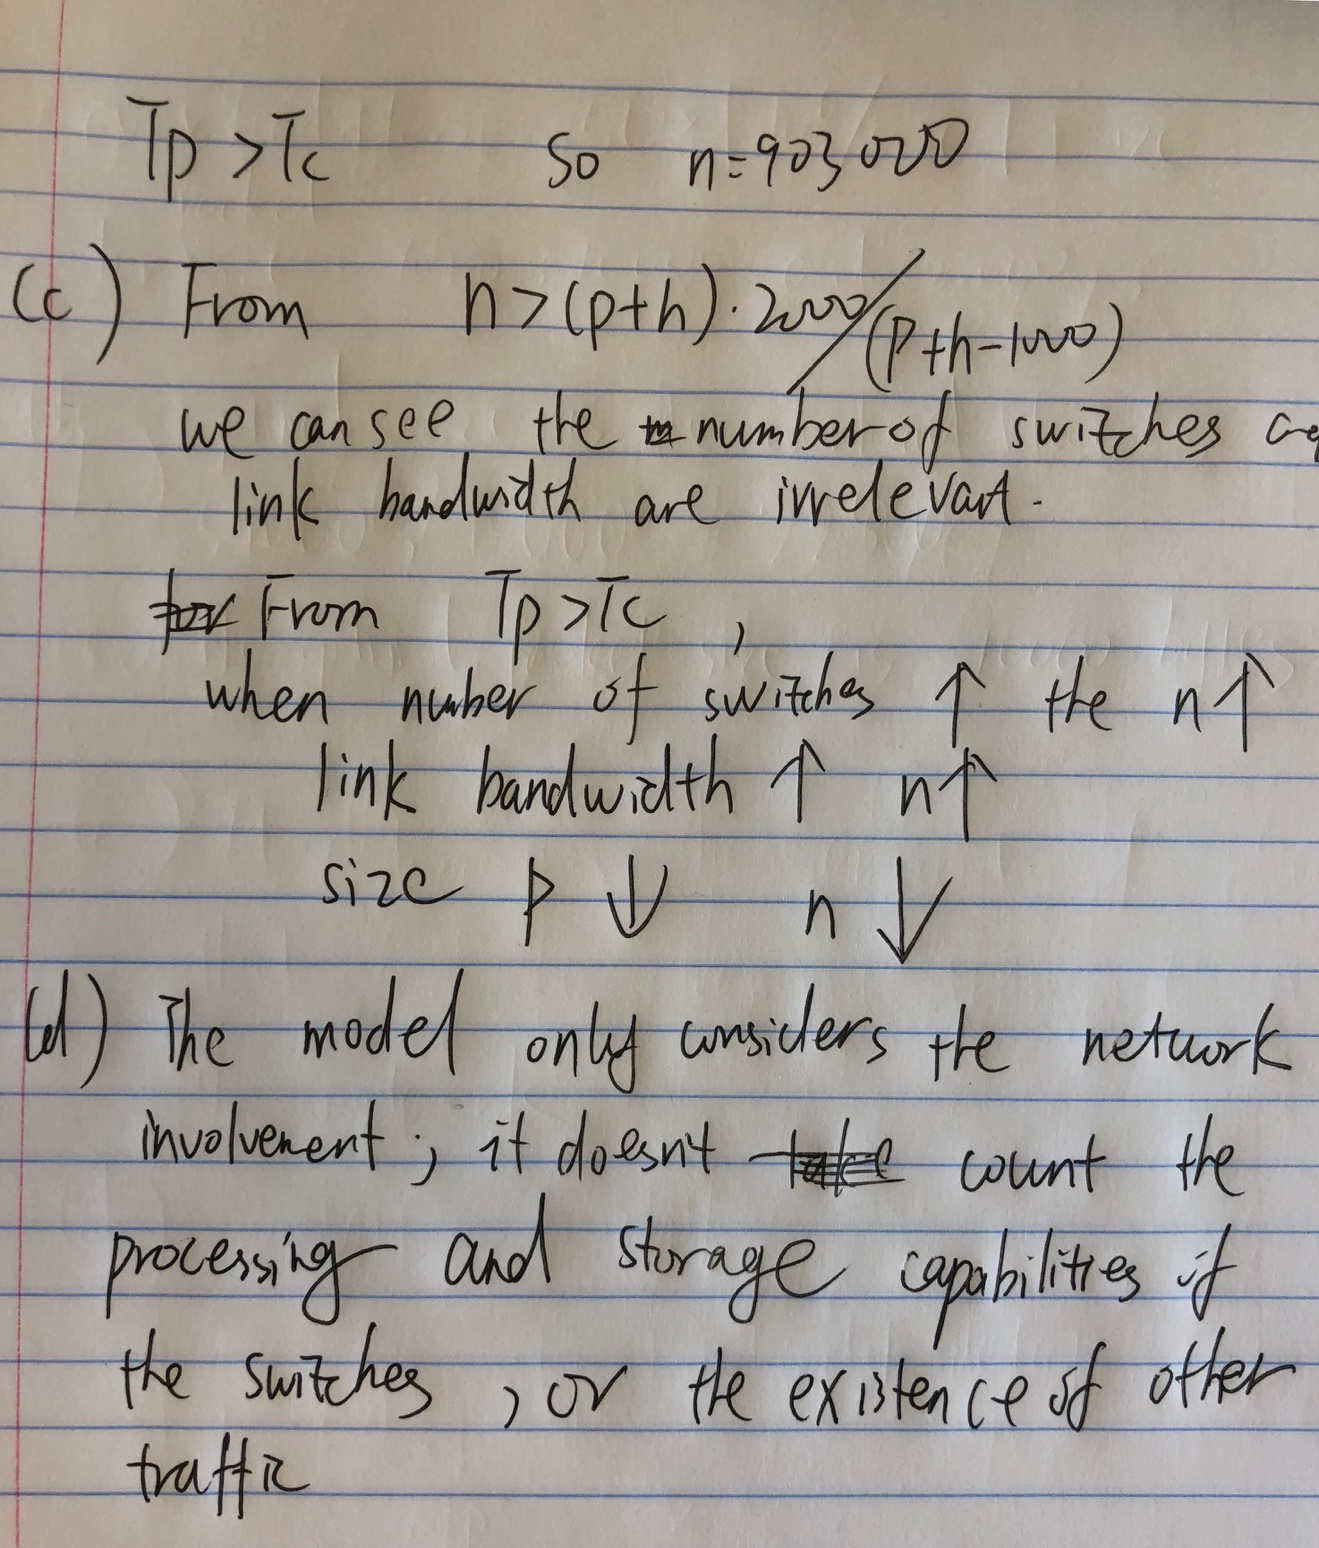 Tp >Tc so n=903000
(c) From n>(p+h)·2000/(p+h-1000)
we can see the number of switches
link bandwidth are irrelevant.
From Tp >Tc ,
when number of switches ↑ the n↑
link bandwidth ↑ n↑
size p ↓ n ↓
(d) The model only considers the network
involvement ; it doesn't count the
processing and storage capabilities if
the switches , or the existence of other
traffic